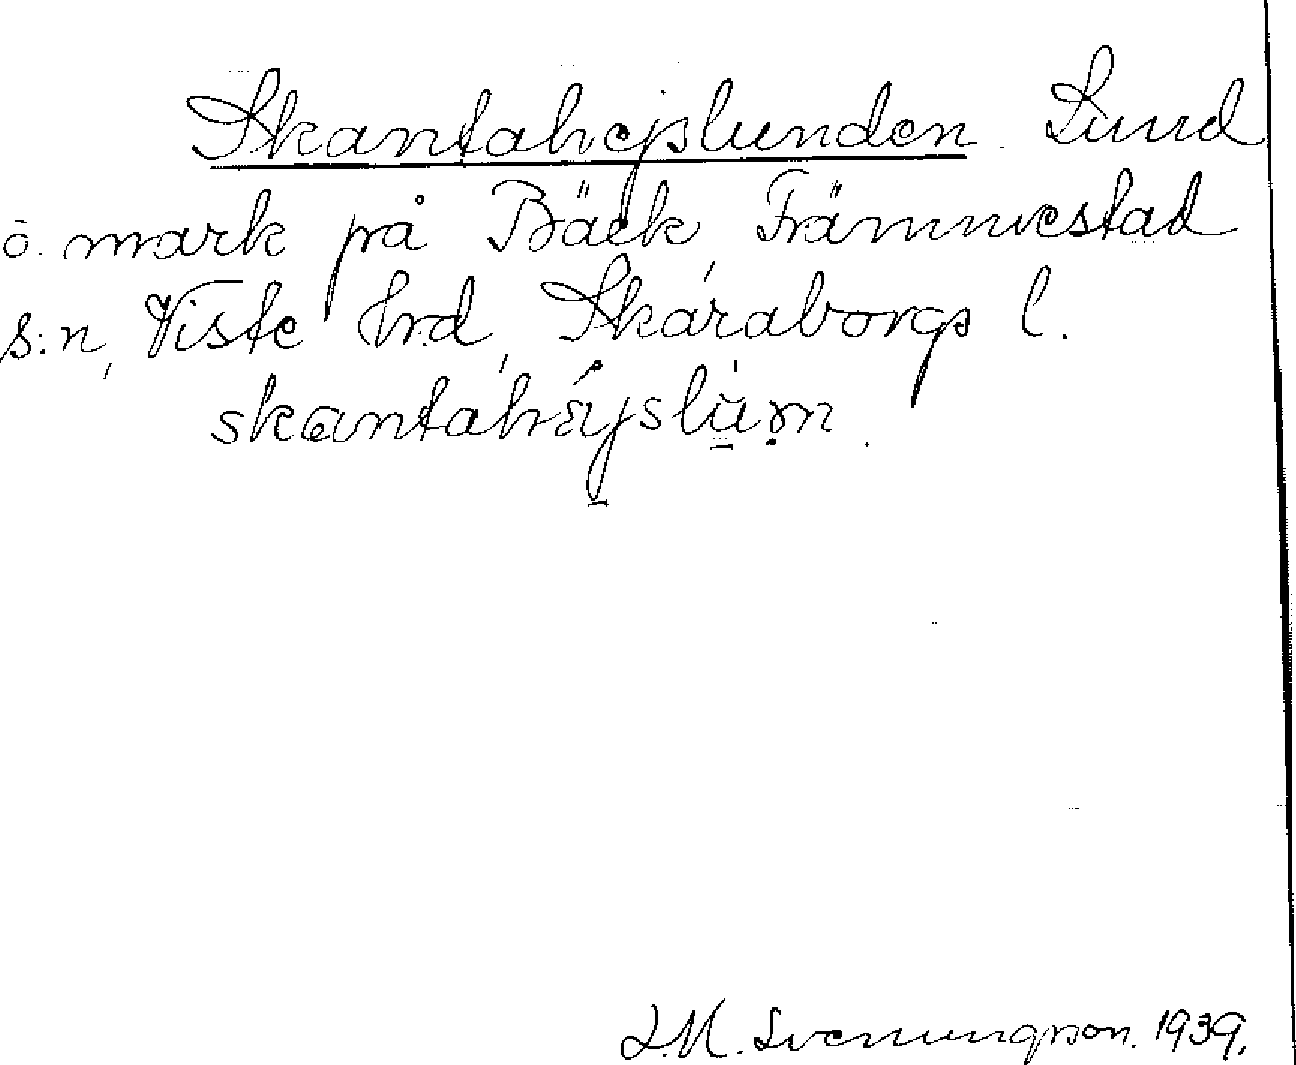 Skantahejslunden Lund
o. mark på Bäck, Främmestad
s:n, Viste hrd, Skaraborgs l.
skantahäjslun
L.M. Svenungsson. 1939.